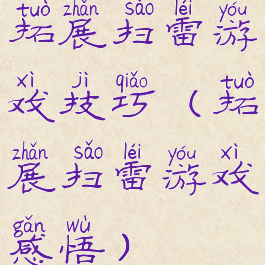 tuò zhǎn sǎo léi yóu
拓展扫雷游
xì jì qiǎo tuò
戏技巧（拓
zhǎn sǎo léi yóu xì
展扫雷游戏
gǎn wù
感悟）